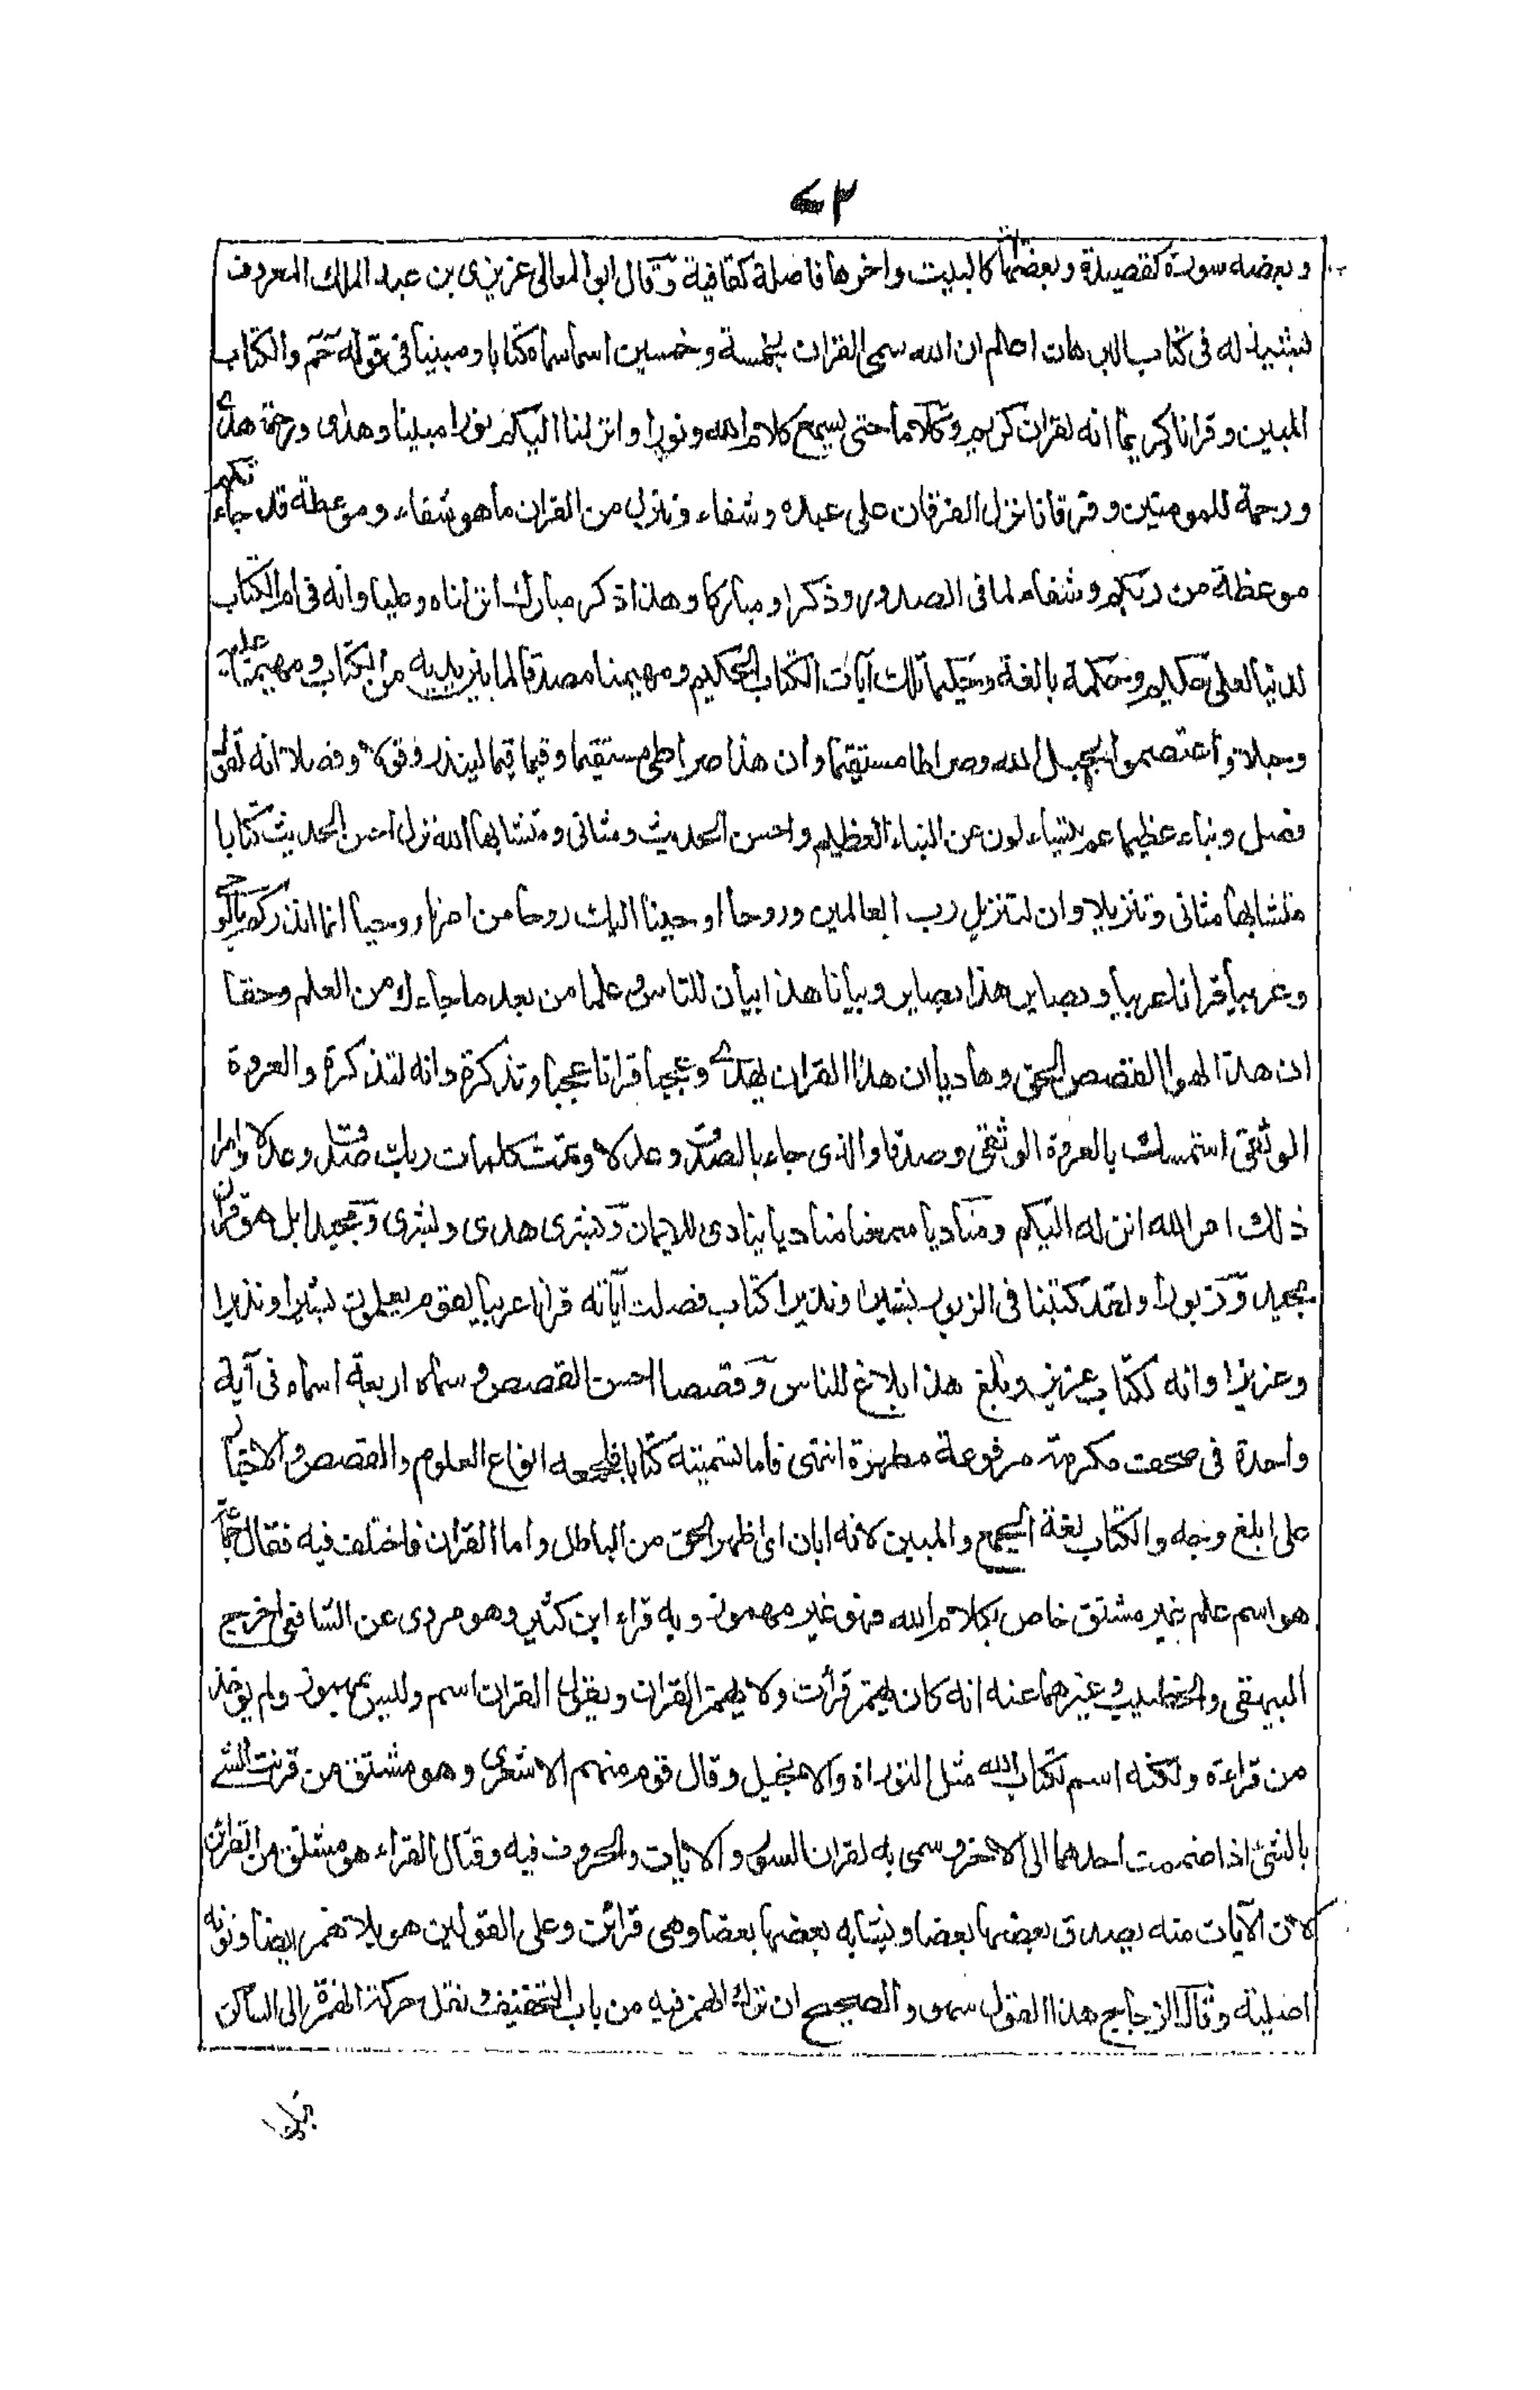 وبعضه سورة كقصيدة وبعضها كالبيت واخرها فاصلة كقافية وقال ابو المعالى عزيزى بن عبد الملك المعروف
بشيذله فى كتاب البرهان اعلم ان الله سمى القران بخمسة وخمسين اسما سماه كتابا ومبينا فى قوله حم والكتاب
المبين وقرانا كريما انه لقران كريم وكلاما حتى يسمع كلام الله ونورا وانزلنا اليكم نورا مبينا وهدى ورحمة هدى
ورحمة للمومنين وفرقانا نزل الفرقان على عبده وشفاء وننزل من القران ما هو شفاء وموعظة قد جاءتكم
موعظة من ربكم وشفاء لما فى الصدور وذكرا ومباركا وهذا ذكر مبارك انزلناه وعليا وانه فى ام الكتاب
لدينا لعلى حكيم وحكمة بالغة وحكيما تلك آيات الكتاب الحكيم ومهيمنا مصدقا لما بين يديه من الكتاب ومهيمنا عليه
وحبلا واعتصموا بحبل الله وصراطا مستقيما وان هذا صراطى مستقيما وقيما قيما لينذر وقولا وفصلا انه لقول
فصل ونباء عظيما عم يتساءلون عن النباء العظيم واحسن الحديث ومثانى ومتشابها الله نزل احسن الحديث كتابا
متشابها مثانى وتنزيلا وان لتنزيل رب العالمين وروحا اوحينا اليك روحا من امرنا ووحيا انما انذركم بالوحى
وعربيا قرانا عربيا وبصاير هذا بصاير وبيانا هذا بيان للناس وعلما من بعد ما جاءك من العلم وحقا
ان هذا لهو القصص الحق وهاديا ان هذا القران يهدى وعجبا قرانا عجبا وتذكرة وانه لتذكرة والعروة
الوثقى استمسك بالعروة الوثقى وصدقا والذى جاء بالصدق وعدلا وتمت كلمات ربك صدقا وعدلا وامرا
ذلك امر الله انزله اليكم ومناديا سمعنا مناديا ينادى للايمان وبشرى هدى وبشرى ومجيدا بل هو قران
مجيد وزبورا ولقد كتبنا فى الزبور بشيرا ونذيرا كتاب فصلت آياته قرانا عربيا لقوم يعلمون بشيرا ونذيرا
وعزيزا وانه لكتاب عزيز وبلغ هذا بلاغ للناس وقصصا احسن القصص وسماه اربعة اسماء فى آية
واحدة فى صحف مكرمة مرفوعة مطهرة انتهى فاما تسميته كتابا فلجمعه انواع العلوم والقصص والاخبار
على ابلغ وجه والكتاب لغة الجمع والمبين لانه ابان اى اظهر الحق من الباطل واما القران فاختلف فيه فقال جماعة
هو اسم علم غير مشتق خاص بكلام الله فهو غير مهموز وبه قراء ابن كثير وهو مروى عن الشافعى اخرج
البيهقى والخطيب وغيرهما عنه انه كان يهمز قرأت ولا يهمز القران ويقول القران اسم وليس بمهموز ولم يوخذ
من قراءة ولكنه اسم لكتاب الله مثل التوراة والانجيل وقال قوم منهم الاشعرى وهو مشتق من قرنت الشئ
بالشئ اذا ضممت احدهما الى الاخر وسمى به لقران السور والايات والحروف فيه وقال القراء هو مشتق من القرائن
لان الآيات منه يصدق بعضها بعضا ويشابه بعضها بعضا وهى قرائن وعلى القولين هو بلا همز ايضا ونونه
اصلية وقال الزجاج هذا القول سهو والصحيح ان ترك الهمز فيه من باب التخفيف ونقل حركة الهمزة الى الساكن